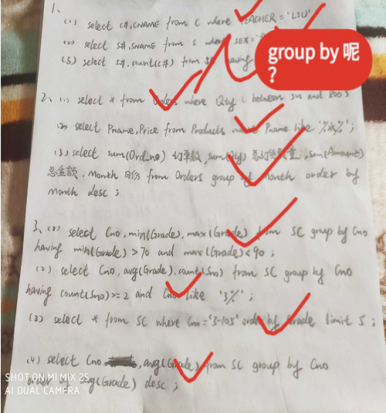 1、
(1) select C#,CNAME from C where TEACHER = 'LIU'
(2) select S#,SNAME from S where SEX=
(3) select S#,count(C#) from having
group by 呢
?
2、(1) select * from Orders where Qty between 500 and 800;
(2) select Pname,Price from Products Pname like
(3) select sum(OrdNo) 订单数, sum(Qty) sum(Amount)
总金额, Month 月份 from Orders group by Month order by
Month desc ;
3、 select Cno, min(Grade), max(Grade) from SC group by Cno
having min(Grade) > 70 and max(Grade) < 90 ;
select Cno, avg(Grade), count(Sno) from SC group by Cno
having count(Sno) >= 2 and Cno like '3%' ;
select * from SC where Cno = '3-105' order by Grade limit 5 ;
(4) select Cno , avg(Grade) from SC group by Cno
avg(Grade) desc ;
SHOT ON MI MIX 2S
AI DUAL CAMERA